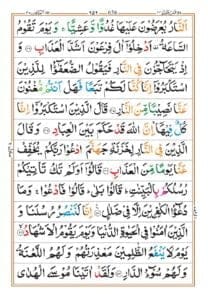 اَلنَّارُ يُعْرَضُوْنَ عَلَيْهَا غُدُوًّا وَّعَشِيًّا ۚ وَيَوْمَ تَقُوْمُ
السَّاعَةُ ۟ اَدْخِلُوْۤا اٰلَ فِرْعَوْنَ اَشَدَّ الْعَذَابِ ۝ وَاِذْ
يَتَحَآجُّوْنَ فِي النَّارِ فَيَقُوْلُ الضُّعَفٰٓؤُا لِلَّذِيْنَ
اسْتَكْبَرُوْۤا اِنَّا كُنَّا لَكُمْ تَبَعًا فَهَلْ اَنْتُمْ مُّغْنُوْنَ
عَنَّا نَصِيْبًا مِّنَ النَّارِ ۝ قَالَ الَّذِيْنَ اسْتَكْبَرُوْۤا اِنَّا
كُلٌّ فِيْهَاۤ ۙ اِنَّ اللّٰهَ قَدْ حَكَمَ بَيْنَ الْعِبَادِ ۝ وَقَالَ
الَّذِيْنَ فِي النَّارِ لِخَزَنَةِ جَهَنَّمَ ادْعُوْا رَبَّكُمْ يُخَفِّفْ
عَنَّا يَوْمًا مِّنَ الْعَذَابِ ۝ قَالُوْۤا اَوَلَمْ تَكُ تَاْتِيْكُمْ
رُسُلُكُمْ بِالْبَيِّنٰتِ ؕ قَالُوْا بَلٰى ؕ قَالُوْا فَادْعُوْا ۚ وَمَا
دُعٰٓؤُا الْكٰفِرِيْنَ اِلَّا فِيْ ضَلٰلٍ ۝ اِنَّا لَنَنْصُرُ رُسُلَنَا وَ
الَّذِيْنَ اٰمَنُوْا فِي الْحَيٰوةِ الدُّنْيَا وَيَوْمَ يَقُوْمُ الْاَشْهَادُ ۝
يَوْمَ لَا يَنْفَعُ الظّٰلِمِيْنَ مَعْذِرَتُهُمْ وَلَهُمُ اللَّعْنَةُ
وَلَهُمْ سُوْٓءُ الدَّارِ ۝ وَلَقَدْ اٰتَيْنَا مُوْسَى الْهُدٰى